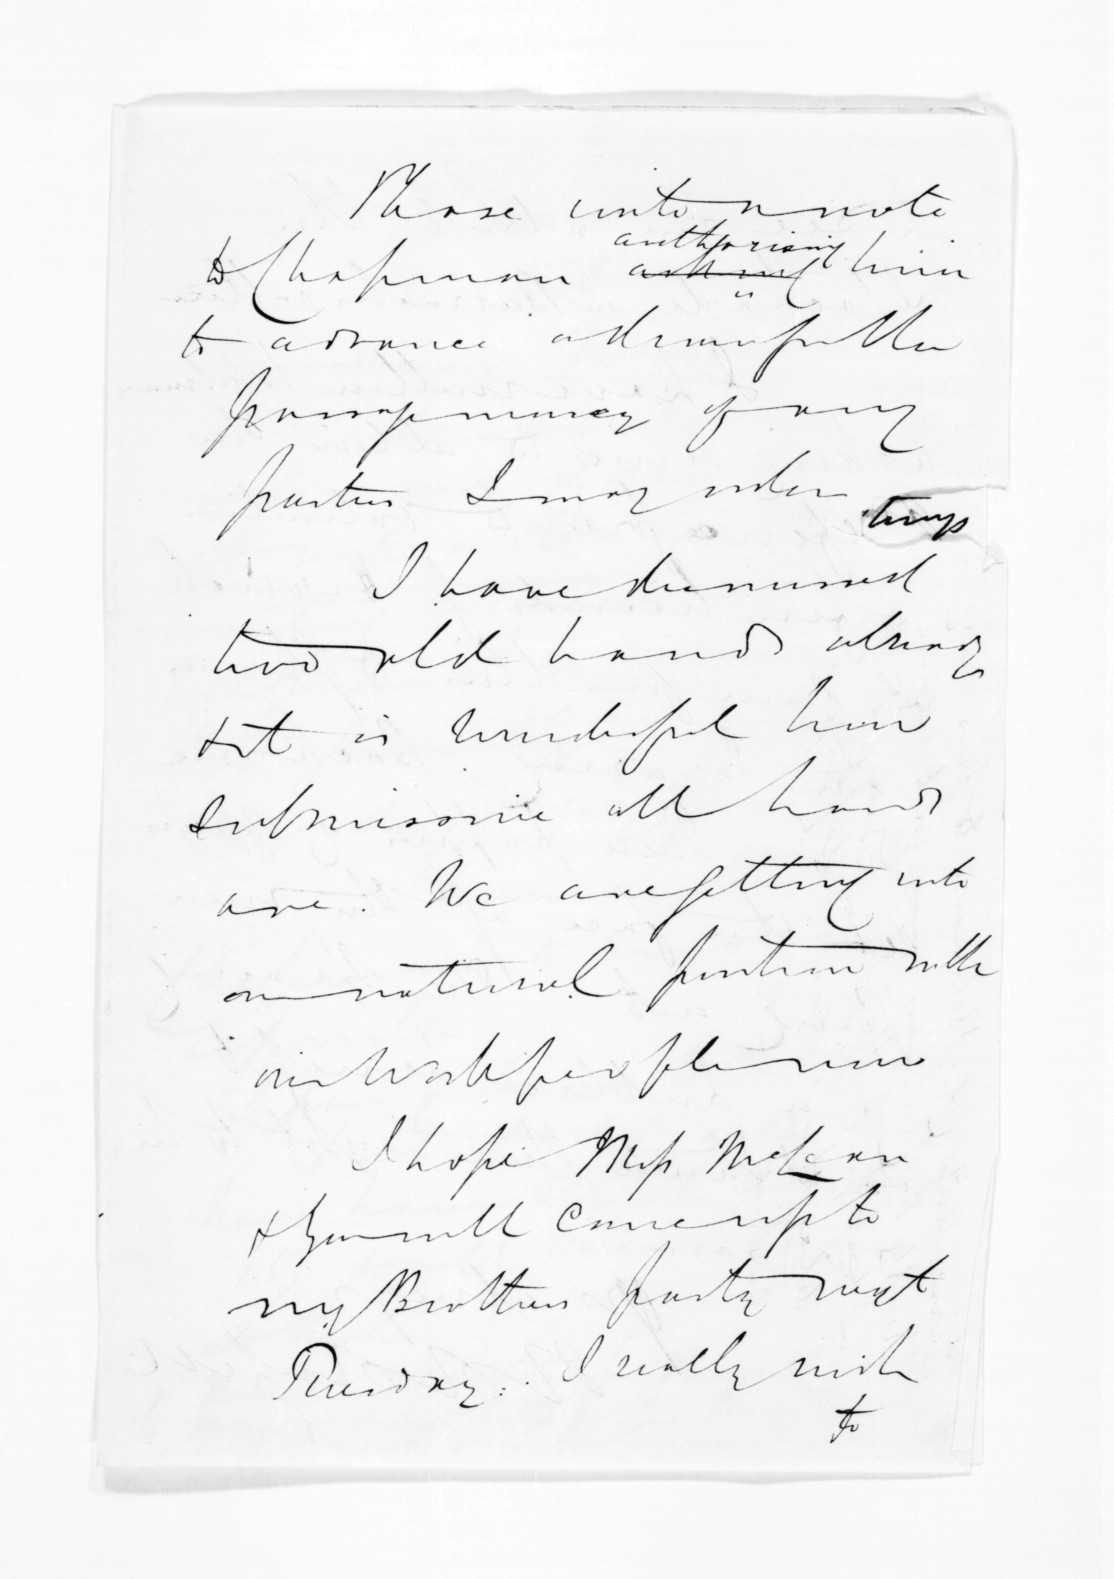 Please write a note
to Chapman authorising him
asking
to advance a draw for the
passage money of any
parties I may order up
I have dismissed
two old hands already
& it is wonderful how
submissive all hands
are. We are getting into
our natural position with
our Workpeople now
I hope Miss McLean
& you will come up to
my Brothers party next
Tuesday. I really wish
to